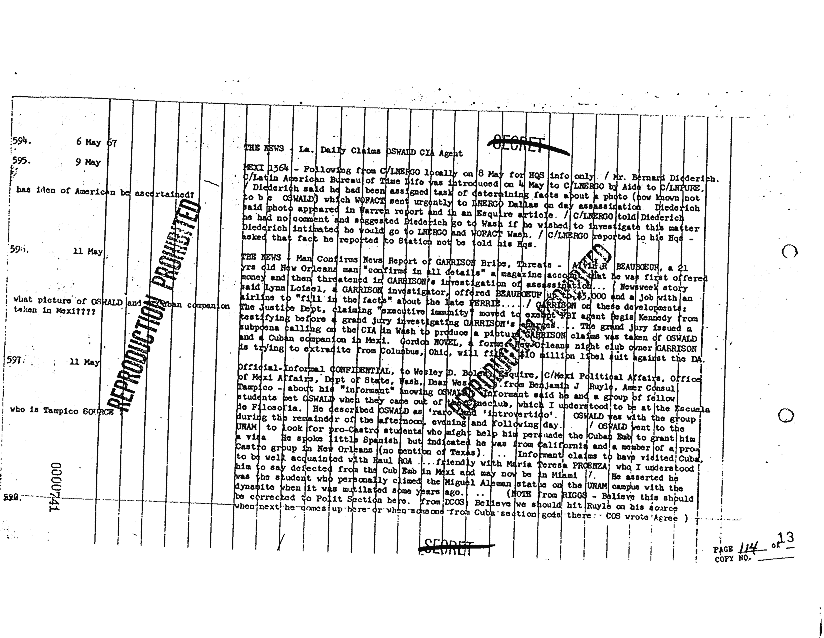 SECRET
594. 6 May 67 THE NEWS - La. Daily Claims OSWALD CIA Agent
595. 9 May
MEXI 1364 - Following from C/LNERGO locally on 8 May for HQS info only. / Mr. Bernard Diederich.
C/Latin American Bureau of Time Life was introduced on 4 May to C/LNERGO by Aide to C/LNPURE.
has iden of American be ascertained?
/ Diederich said he had been assigned task of determining facts about a photo (now known not
to be OSWALD) which WOFACT sent urgently to LNERGO Dallas on day assassination Diederich
said photo appeared in Warren report and in an Esquire article. / C/LNERGO told Diederich
he had no comment and suggested Diederich go to Wash if he wished to investigate this matter
Diederich intimated he would go to LNERGO and WOFACT Wash. / C/LNERGO reported to his Hqs -
asked that fact he reported to Station not be told his Hqs.
596. 11 May
THE NEWS - Man Confirms News Report of GARRISON Bribe, Threats - BEAUBOEUF, a 21
yrs old New Orleans man "confirms in all details" a magazine account that he was first offered
money and then threatened in GARRISON's investigation of assassination.... / Newsweek story
said Lynn Loisel, a GARRISON investigator, offered BEAUBOEUF up to $3,000 and a job with an
what picture of OSWALD and Cuban companion
airline to "fill in the facts" about the late FERRIE..../ GARRISON on these developments:
taken in Mexi????
The Justice Dept, claiming "executive immunity" moved to except FBI agent Regis Kennedy from
testifying before a grand jury investigating GARRISON's charges... The grand jury issued a
subpoena calling on the CIA in Wash to produce a picture GARRISON claims was taken of OSWALD
and a Cuban companion in Mexi. Gordon NOVEL, a former New Orleans night club owner GARRISON
is trying to extradite from Columbus, Ohio, will file $10 million libel suit against the DA.
597. 11 May
Official-Informal CONFIDENTIAL, to Wesley D. Esquire, C/Mexi Political Affairs, Office
of Mexi Affairs, Dept of State, Wash, Dear Wes from Benjamin J Ruyle, Amer Consul
Tampico - about his "informant" knowing OSWALD Informant said he and a group of fellow
students met OSWALD when they came out of the cineclub, which I understood to be at the Escuela
who is Tampico SOURCE
de Filosofia. He described OSWALD as 'raro' and 'introvertido'. OSWALD was with the group
during the remainder of the afternoon, evening and following day. / OSWALD went to the
UNAM to look for pro-Castro students who might help him persuade the Cuban Emb to grant him
a visa He spoke little Spanish, but indicated he was from California and a member of a pro-
Castro group in New Orleans (no mention of Texas). .. Informant claims to have visited Cuba
to be well acquainted with Raul ROA ...friendly with Maria Teresa PROENZA who I understood
him to say defected from the Cub Emb in Mexi and may now be in Miami /. He asserted he
was the student who personally climed the Miguel Aleman statue on the UNAM campus with the
dynamite when it was mutilated some years ago.. .. (NOTE from RIGGS - Believe this should
598.
be corrected to Polit Section here. from DCOS: Believe we should hit Ruyle on his source
when next he comes up here or when someone from Cuba section goes there. COS wrote Agree )
REPRODUCTION PROHIBITED
REPRODUCTION PROHIBITED
0000741
SECRET
PAGE 114 of 13
COPY NO.